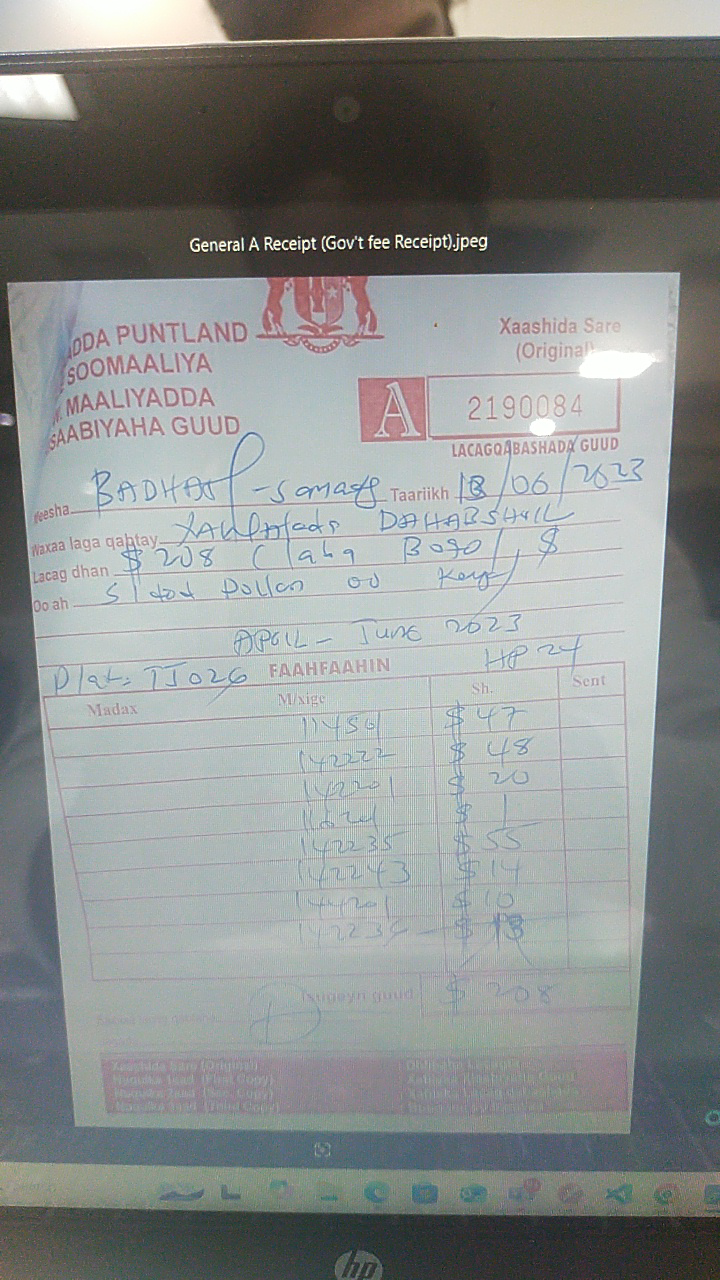 General A Receipt (Gov't fee Receipt).jpeg
ADDA PUNTLAND
SOOMAALIYA
MAALIYADDA
SAABIYAHA GUUD
Xaashida Sare
(Original)
A
2190084
LACAGQABASHADA GUUD
Meesha Taariikh 18/06/2023
Waxaa laga qabtay DAHABSHIIL
Lacag dhan $ 208 ( laba Boqol, $
Oo ah Sided Dollar oo Keys
APRIL - June 2023
Plat: TJ026 FAAHFAAHIN HP 24
Madax M/xige Sh. Sent
$ 47
142222 $ 48
142201 $ 20
$ 1
142235 $ 55
142243 $ 14
144201 $ 10
$ 13
Isugeyn guud $ 208
Xaashida Sare (Original)
Nuqulka 1aad (First Copy)
Nuqulka 2aad (Sec. Copy)
Nuqulka 3aad (Third Copy)
hp